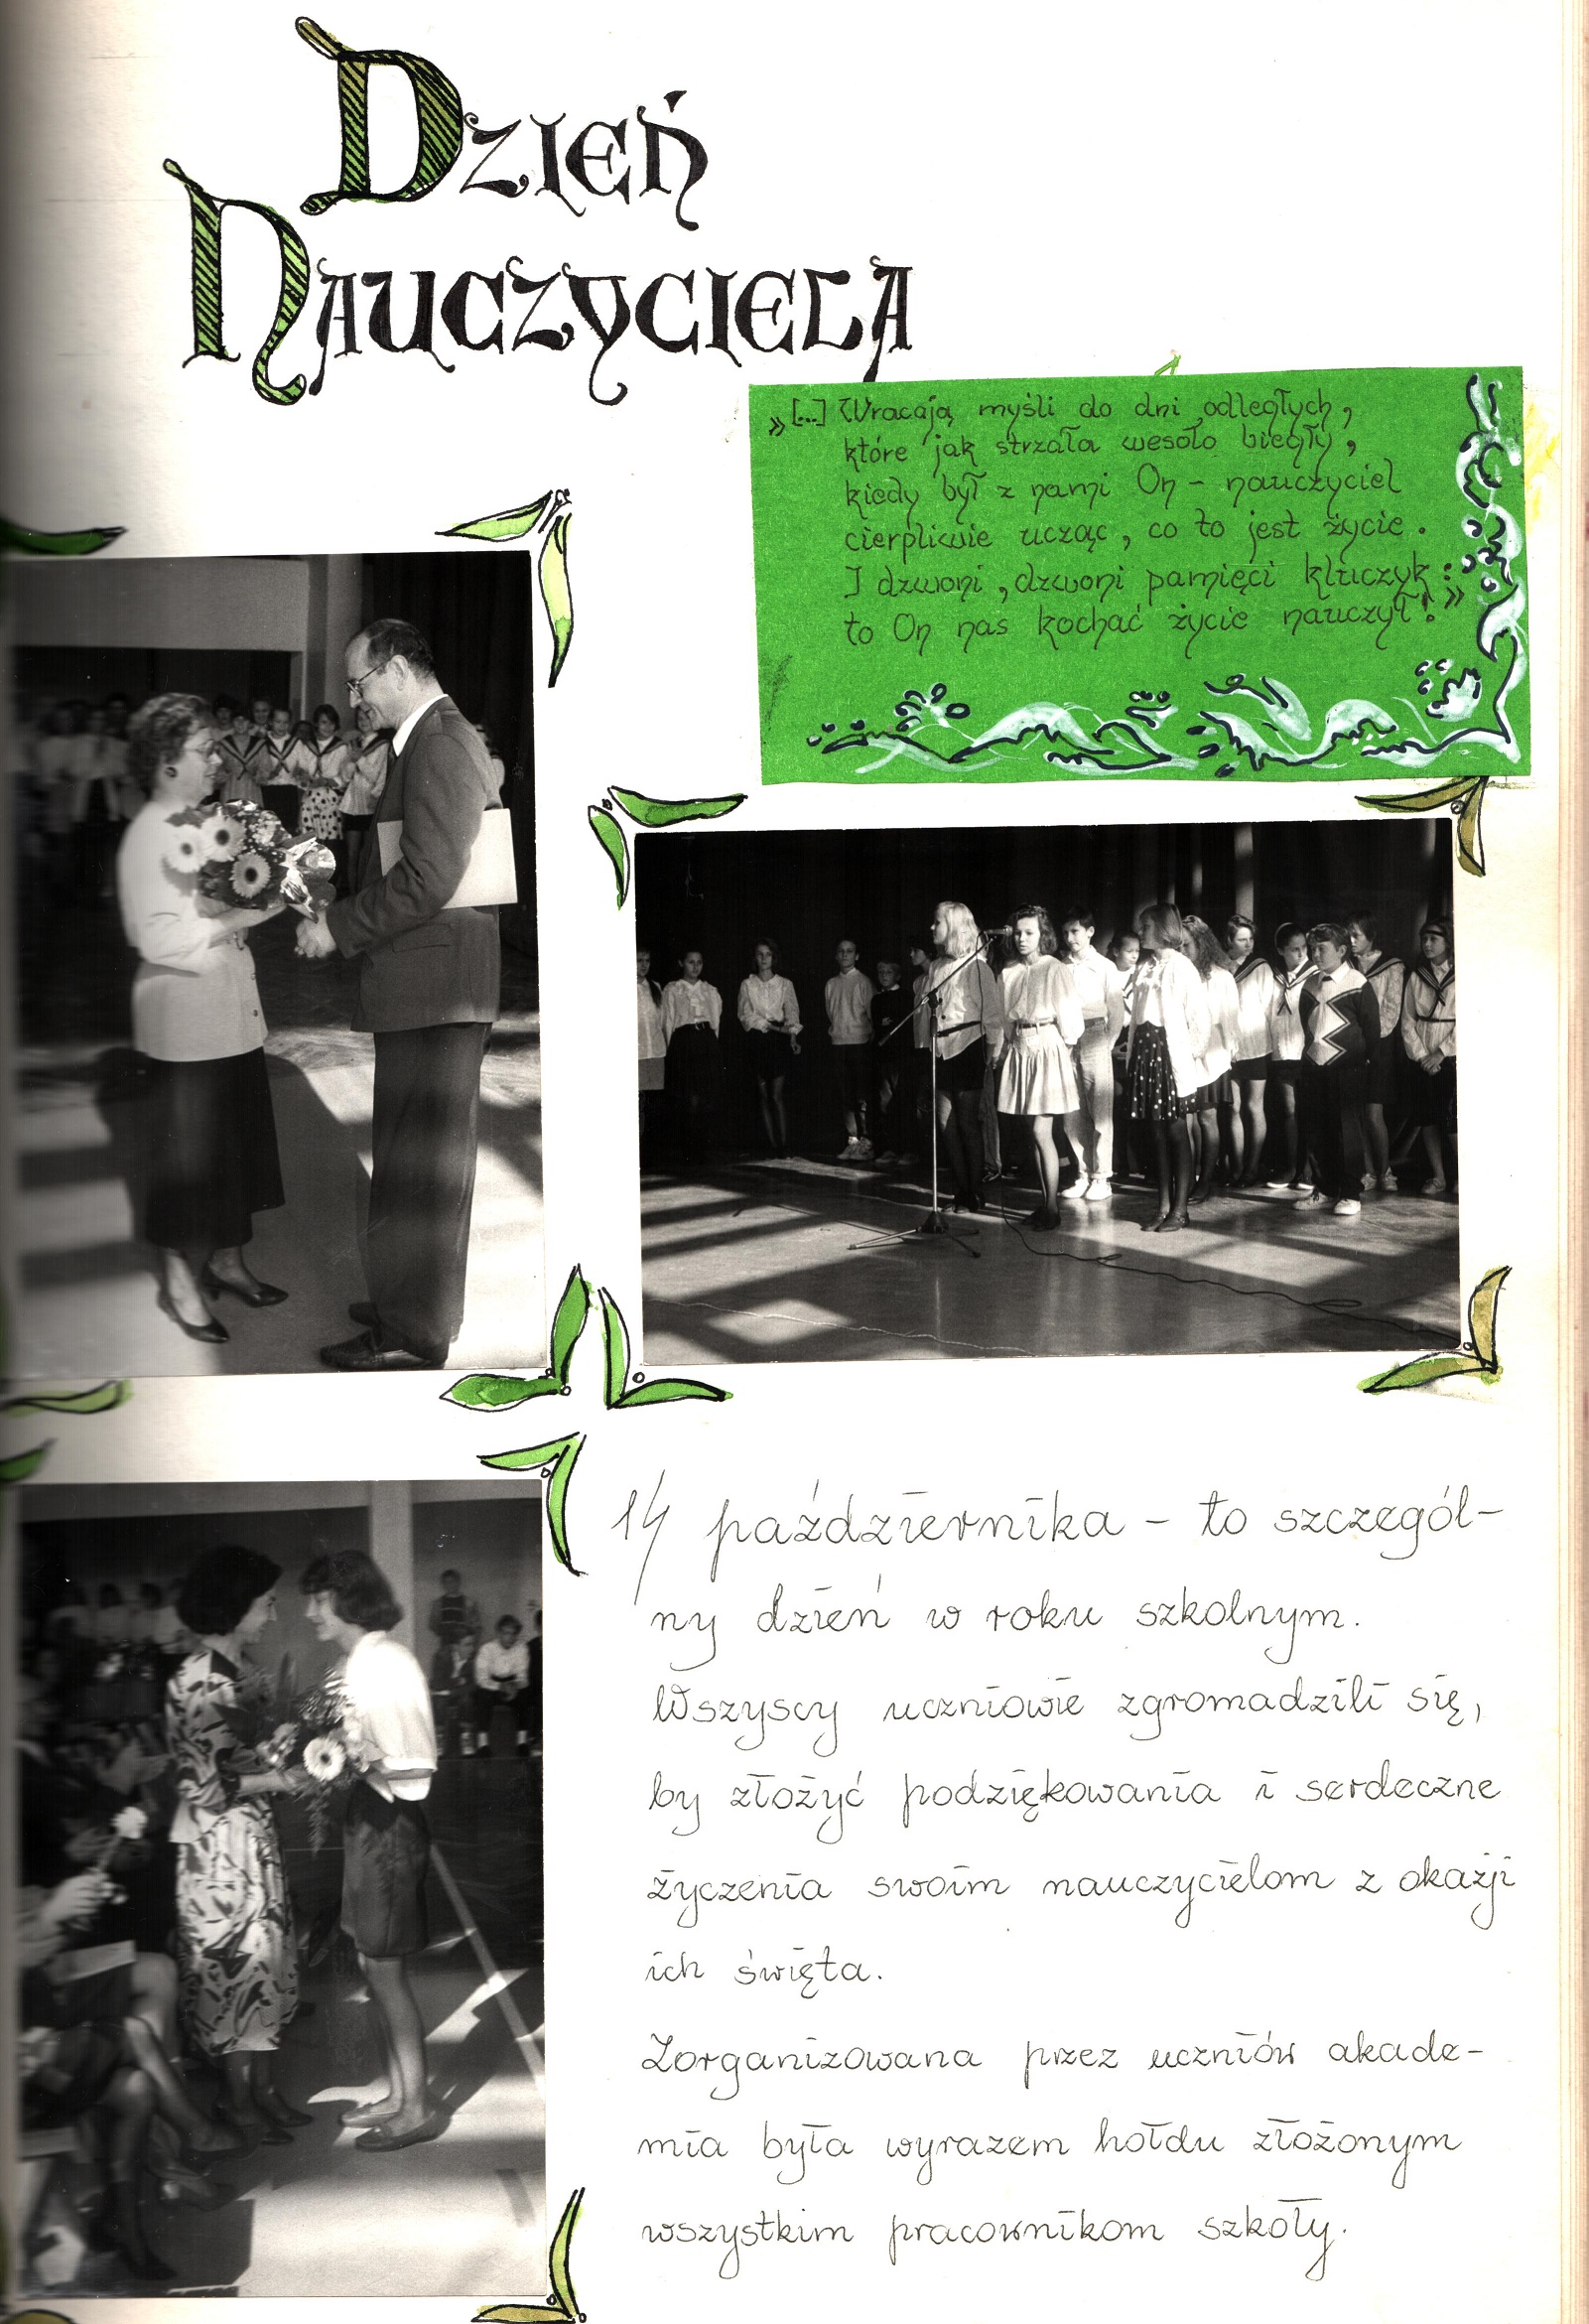 Dzień
Nauczyciela
„[...] Wracają myśli do dni odległych,
które jak strzała wesoło biegły,
kiedy był z nami On - nauczyciel
cierpliwie ucząc, co to jest życie.
I dzwoni, dzwoni pamięci kluczyk:
to On nas kochać życie nauczył!”
14 października - to szczegól-
ny dzień w roku szkolnym.
Wszyscy uczniowie zgromadzili się,
by złożyć podziękowania i serdeczne
życzenia swoim nauczycielom z okazji
ich święta.
Zorganizowana przez uczniów akade-
mia była wyrazem hołdu złożonym
wszystkim pracownikom szkoły.